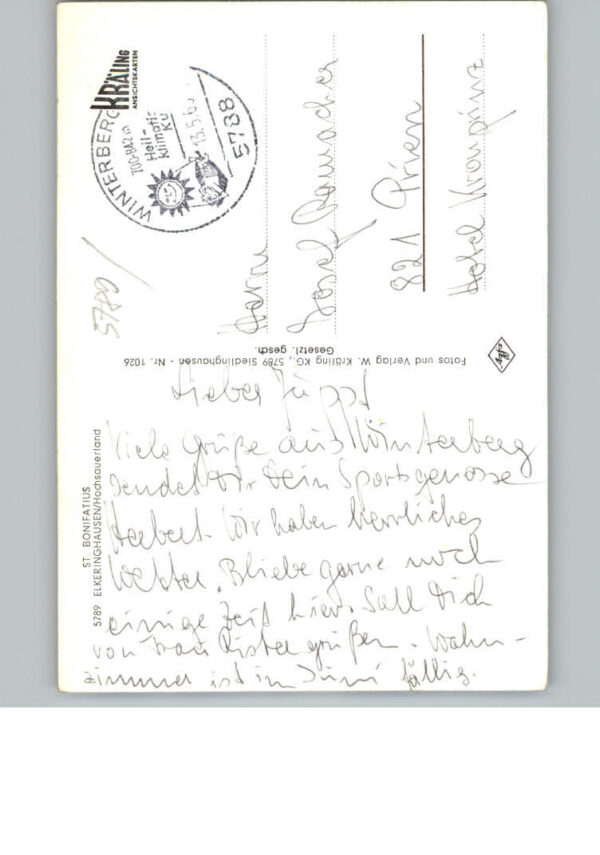 KRÄLING
ANSICHTSKARTEN
WINTERBERG
700-842 m
Heil-
klimatic
Ku
13.5.6
5788
5789
Herrn
Josef
821 Prien
Hotel Kronprinz
Fotos und Verlag W. Kräling KG., 5789 Siedlinghausen - Nr. 1026
Gesetzl. gesch.
ST. BONIFATIUS
5789 ELKERINGHAUSEN/Hochsauerland
Lieber Juppi
Viele Grüße aus Winterberg
sendet Dir Dein Sportgenosse
Herbert. Wir haben herrliches
Wetter. Bliebe gerne noch
einige Zeit hier. Soll Dich
von Frau grüßen. Wohn-
zimmer ist im Juni fällig.